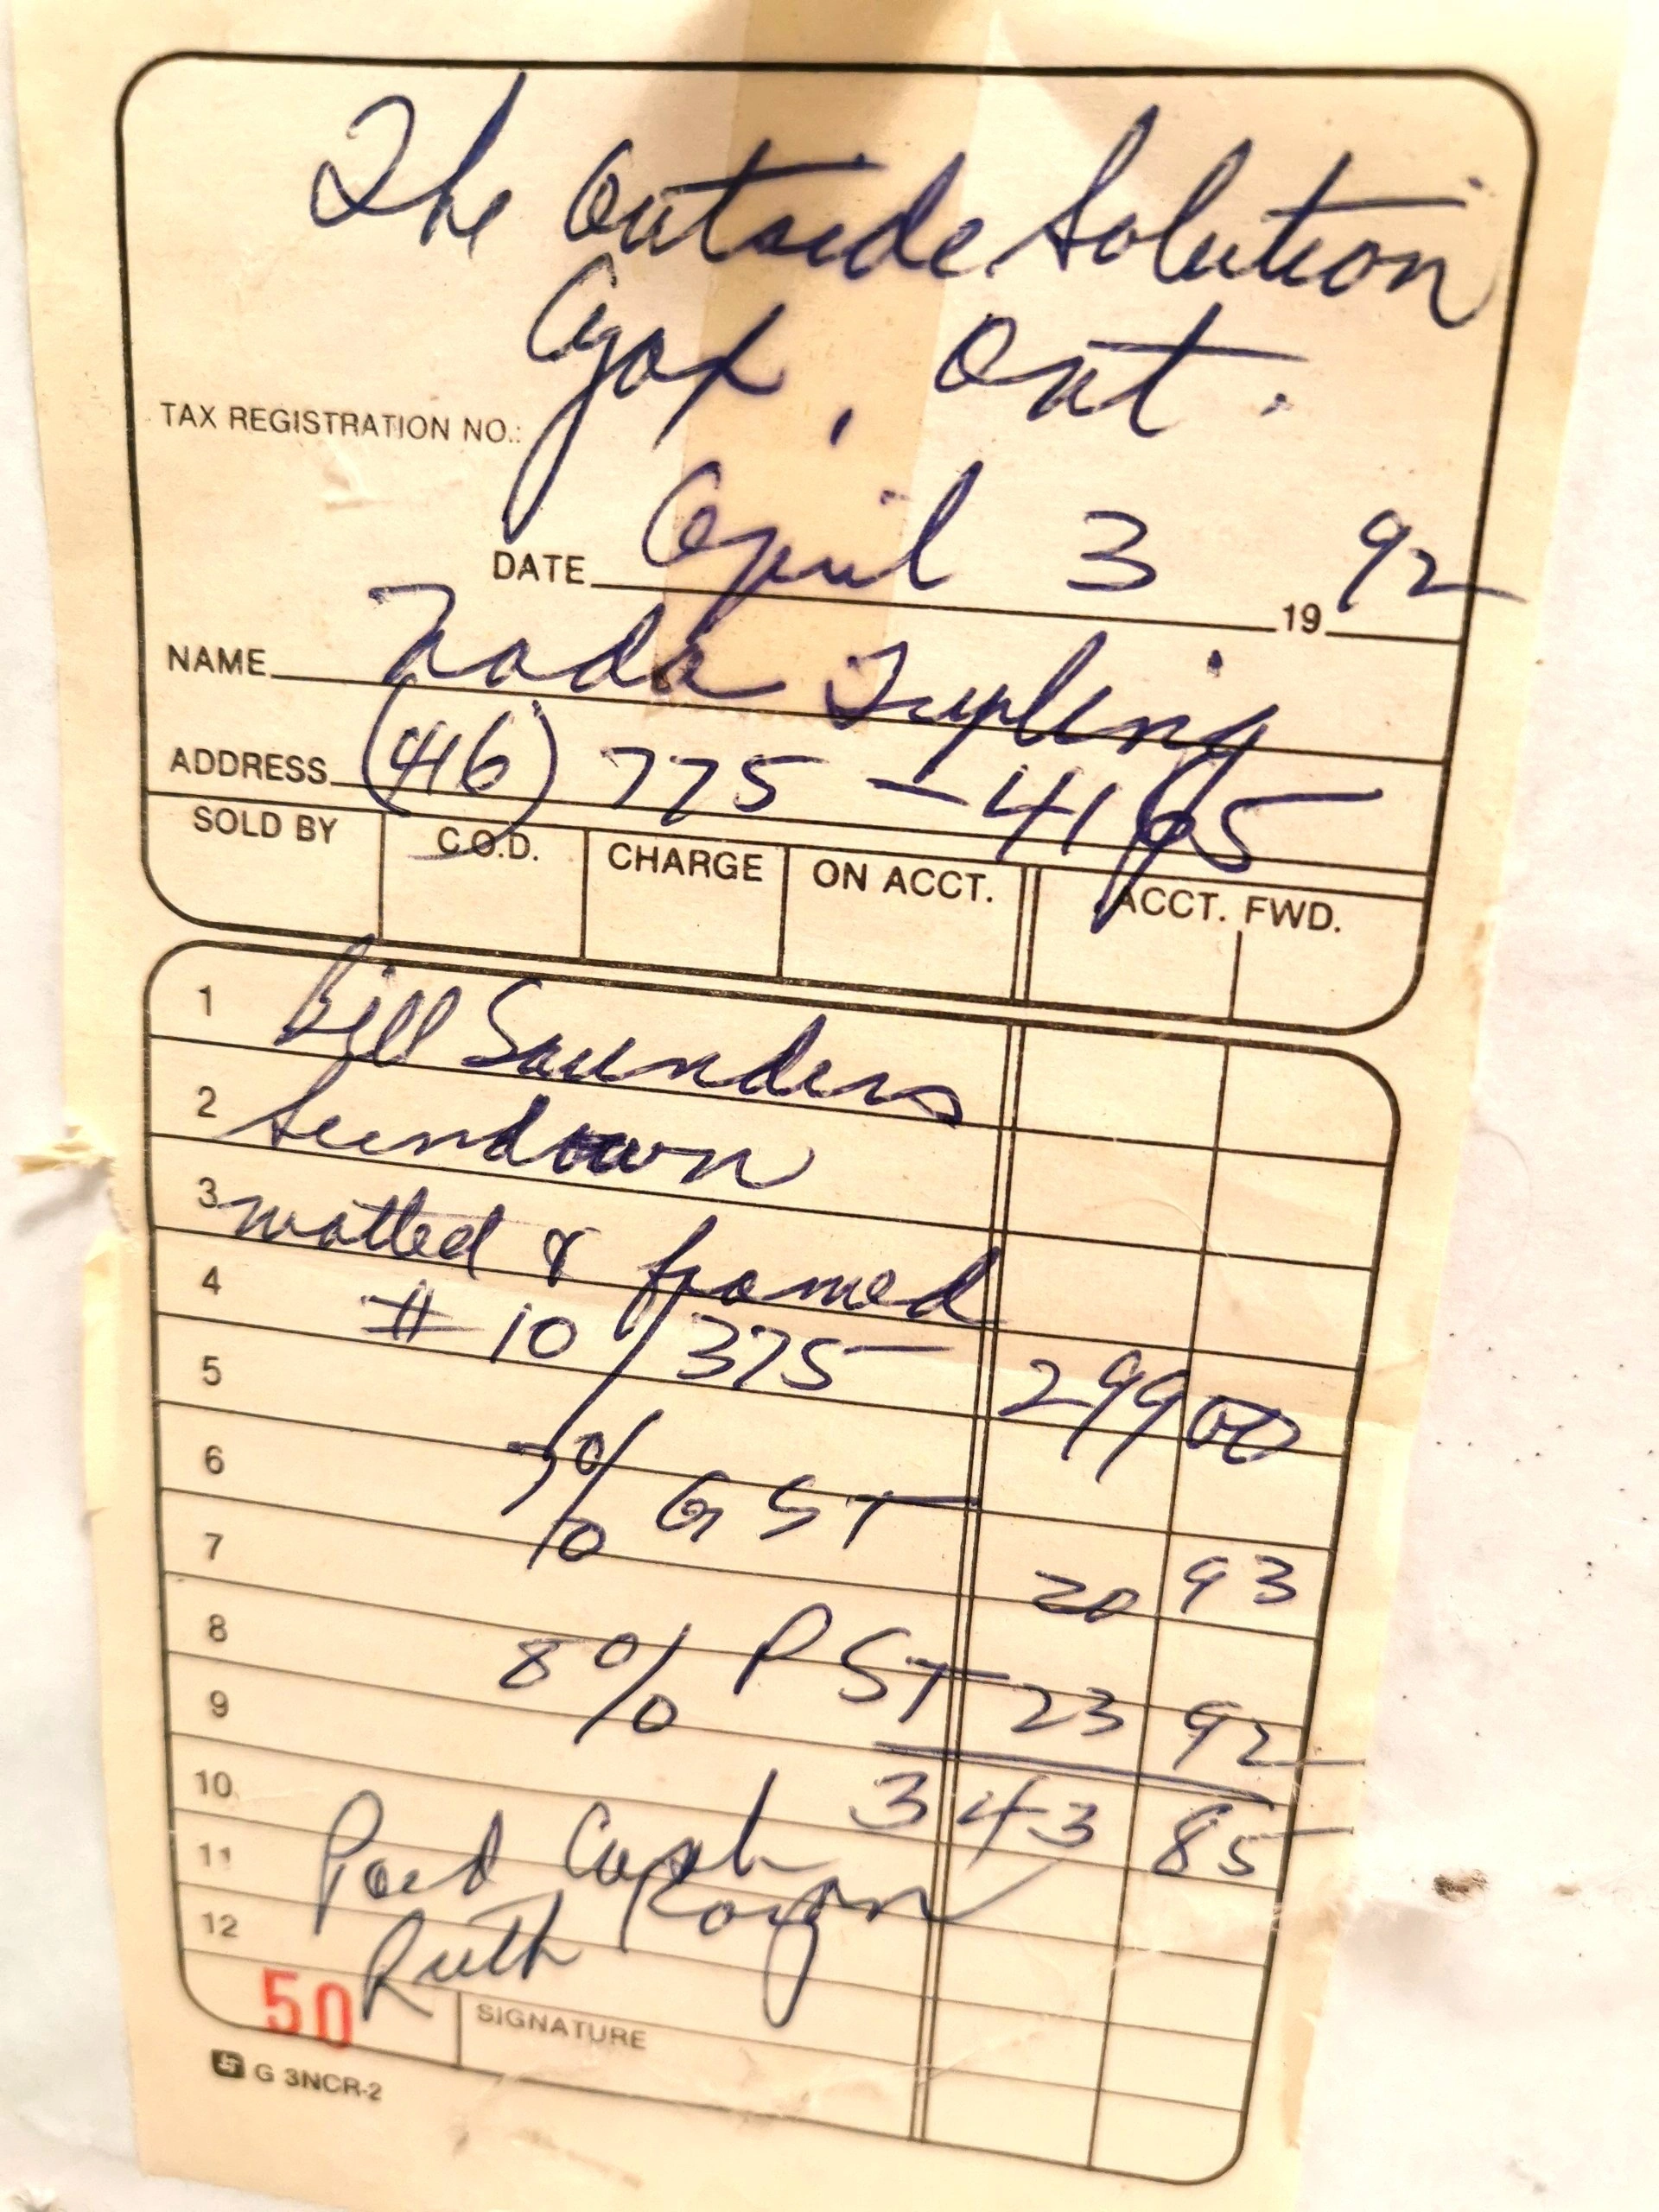 The Outside Solution
Ajax, Ont.
TAX REGISTRATION NO.:
DATE April 3 1992
NAME Nada Tupling
ADDRESS (416) 775-4165
SOLD BY C.O.D. CHARGE ON ACCT. ACCT. FWD.
1 Bill Saunders
2 Sundown
3 matted & framed
4 # 10/375 299 00
5
6 7% GST
7 20 93
8 8% PST 23 92
9
10 343 85
11 Paid Cash
12 Ruth
50 SIGNATURE
G 3NCR-2